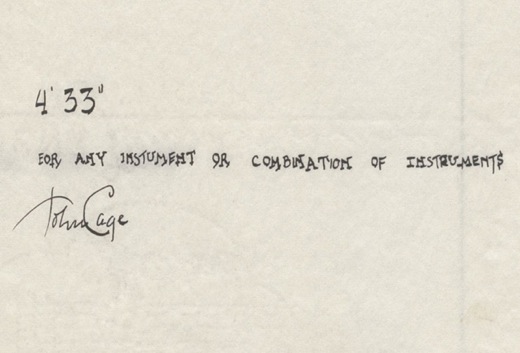 4' 33"
FOR ANY INSTUMENT OR COMBINATION OF INSTRUMENTS
John Cage